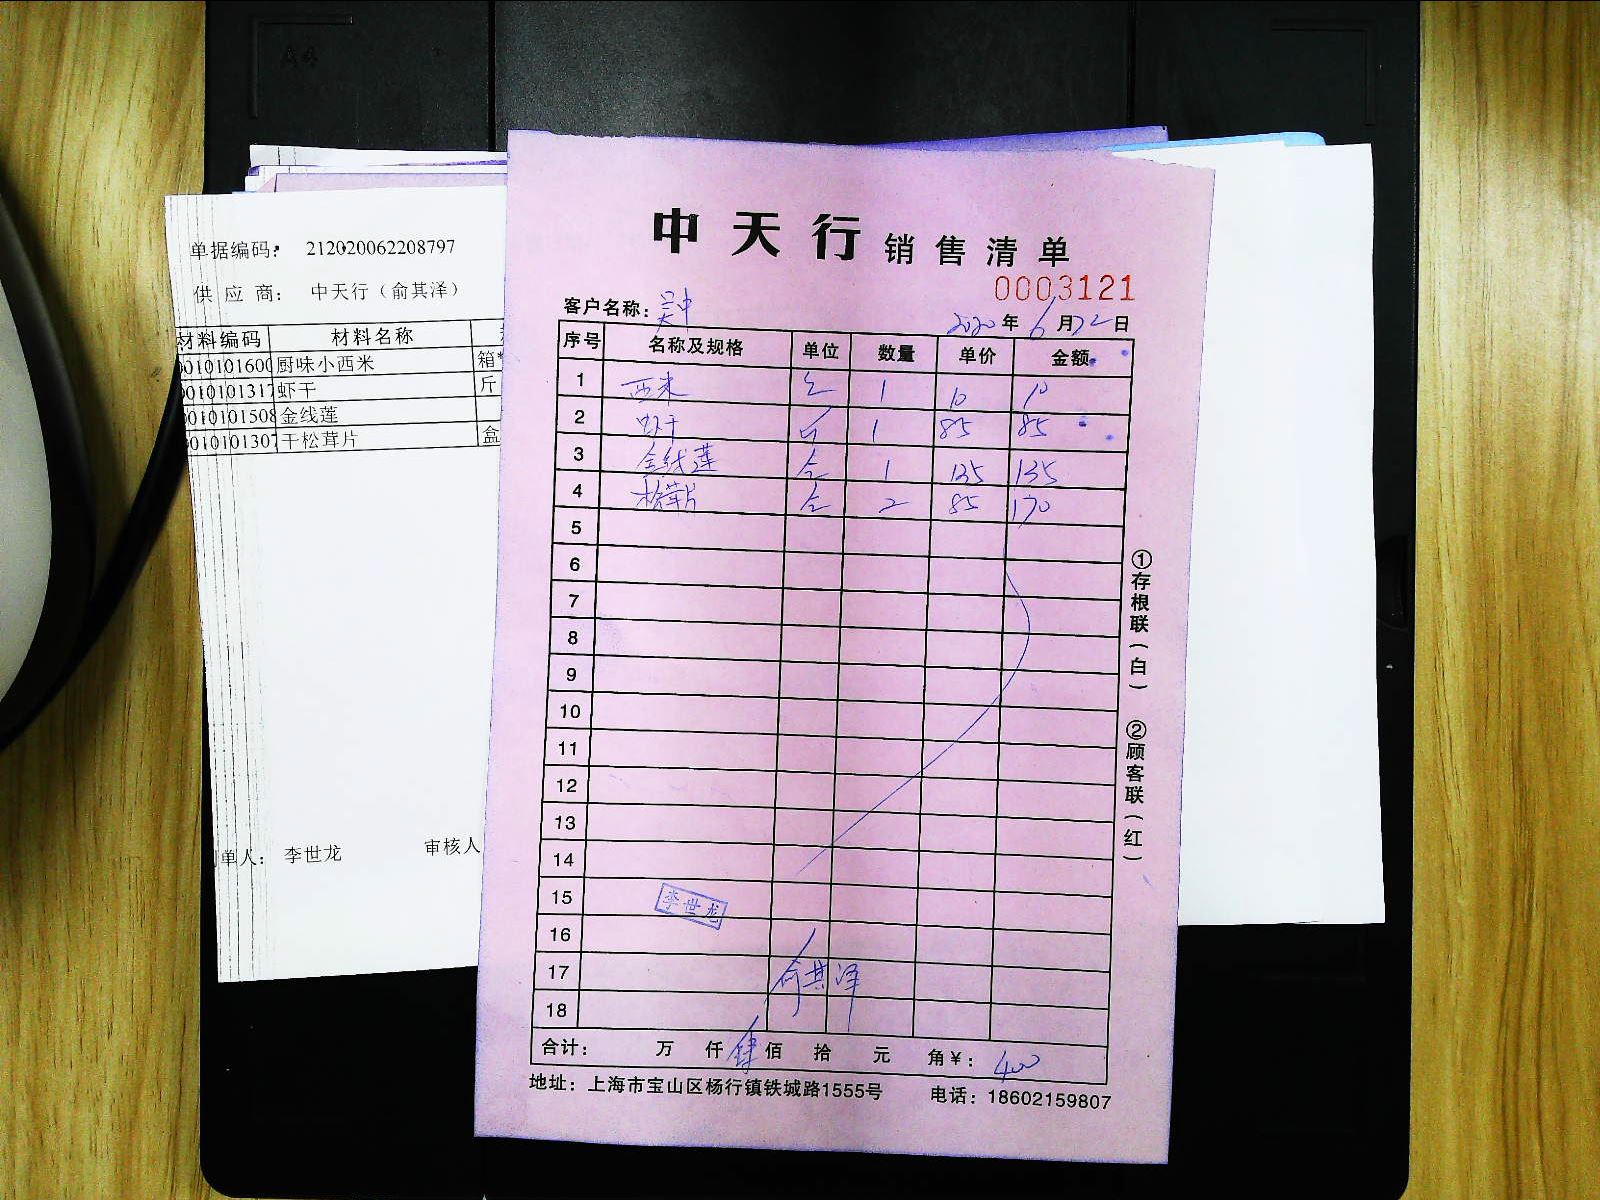 A4
单据编码： 212020062208797
供 应 商： 中天行（俞其泽）
材料编码 材料名称
0010101600 厨味小西米 箱*
0010101317 虾干 斤
0010101508 金线莲
0010101307 干松茸片 盒
单人： 李世龙 审核人
中天行 销售清单
0003121
客户名称： 吴中
2020 年 6 月 22 日
序号 名称及规格 单位 数量 单价 金额
1 西米 包 1 10 10
2 虾干 斤 1 85 85
3 金线莲 盒 1 135 135
4 松茸片 盒 2 85 170
5
6
7
8
9
10
11
12
13
14
15 李世龙
16
17 俞其泽
18
合计： 万 仟 肆 佰 拾 元 角 ¥： 400
地址：上海市宝山区杨行镇铁城路1555号 电话：18602159807
①存根联（白） ②顾客联（红）